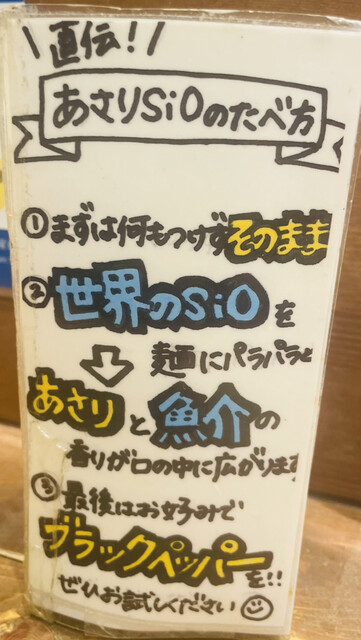 直伝!!
あさりSiOのたべ方
①まずは何もつけずそのまま
②世界のSiOを
麺にパラパラと
あさりと魚介の
香りが口の中に広がります
③最後はお好みで
ブラックペッパーを!!
ぜひお試しください